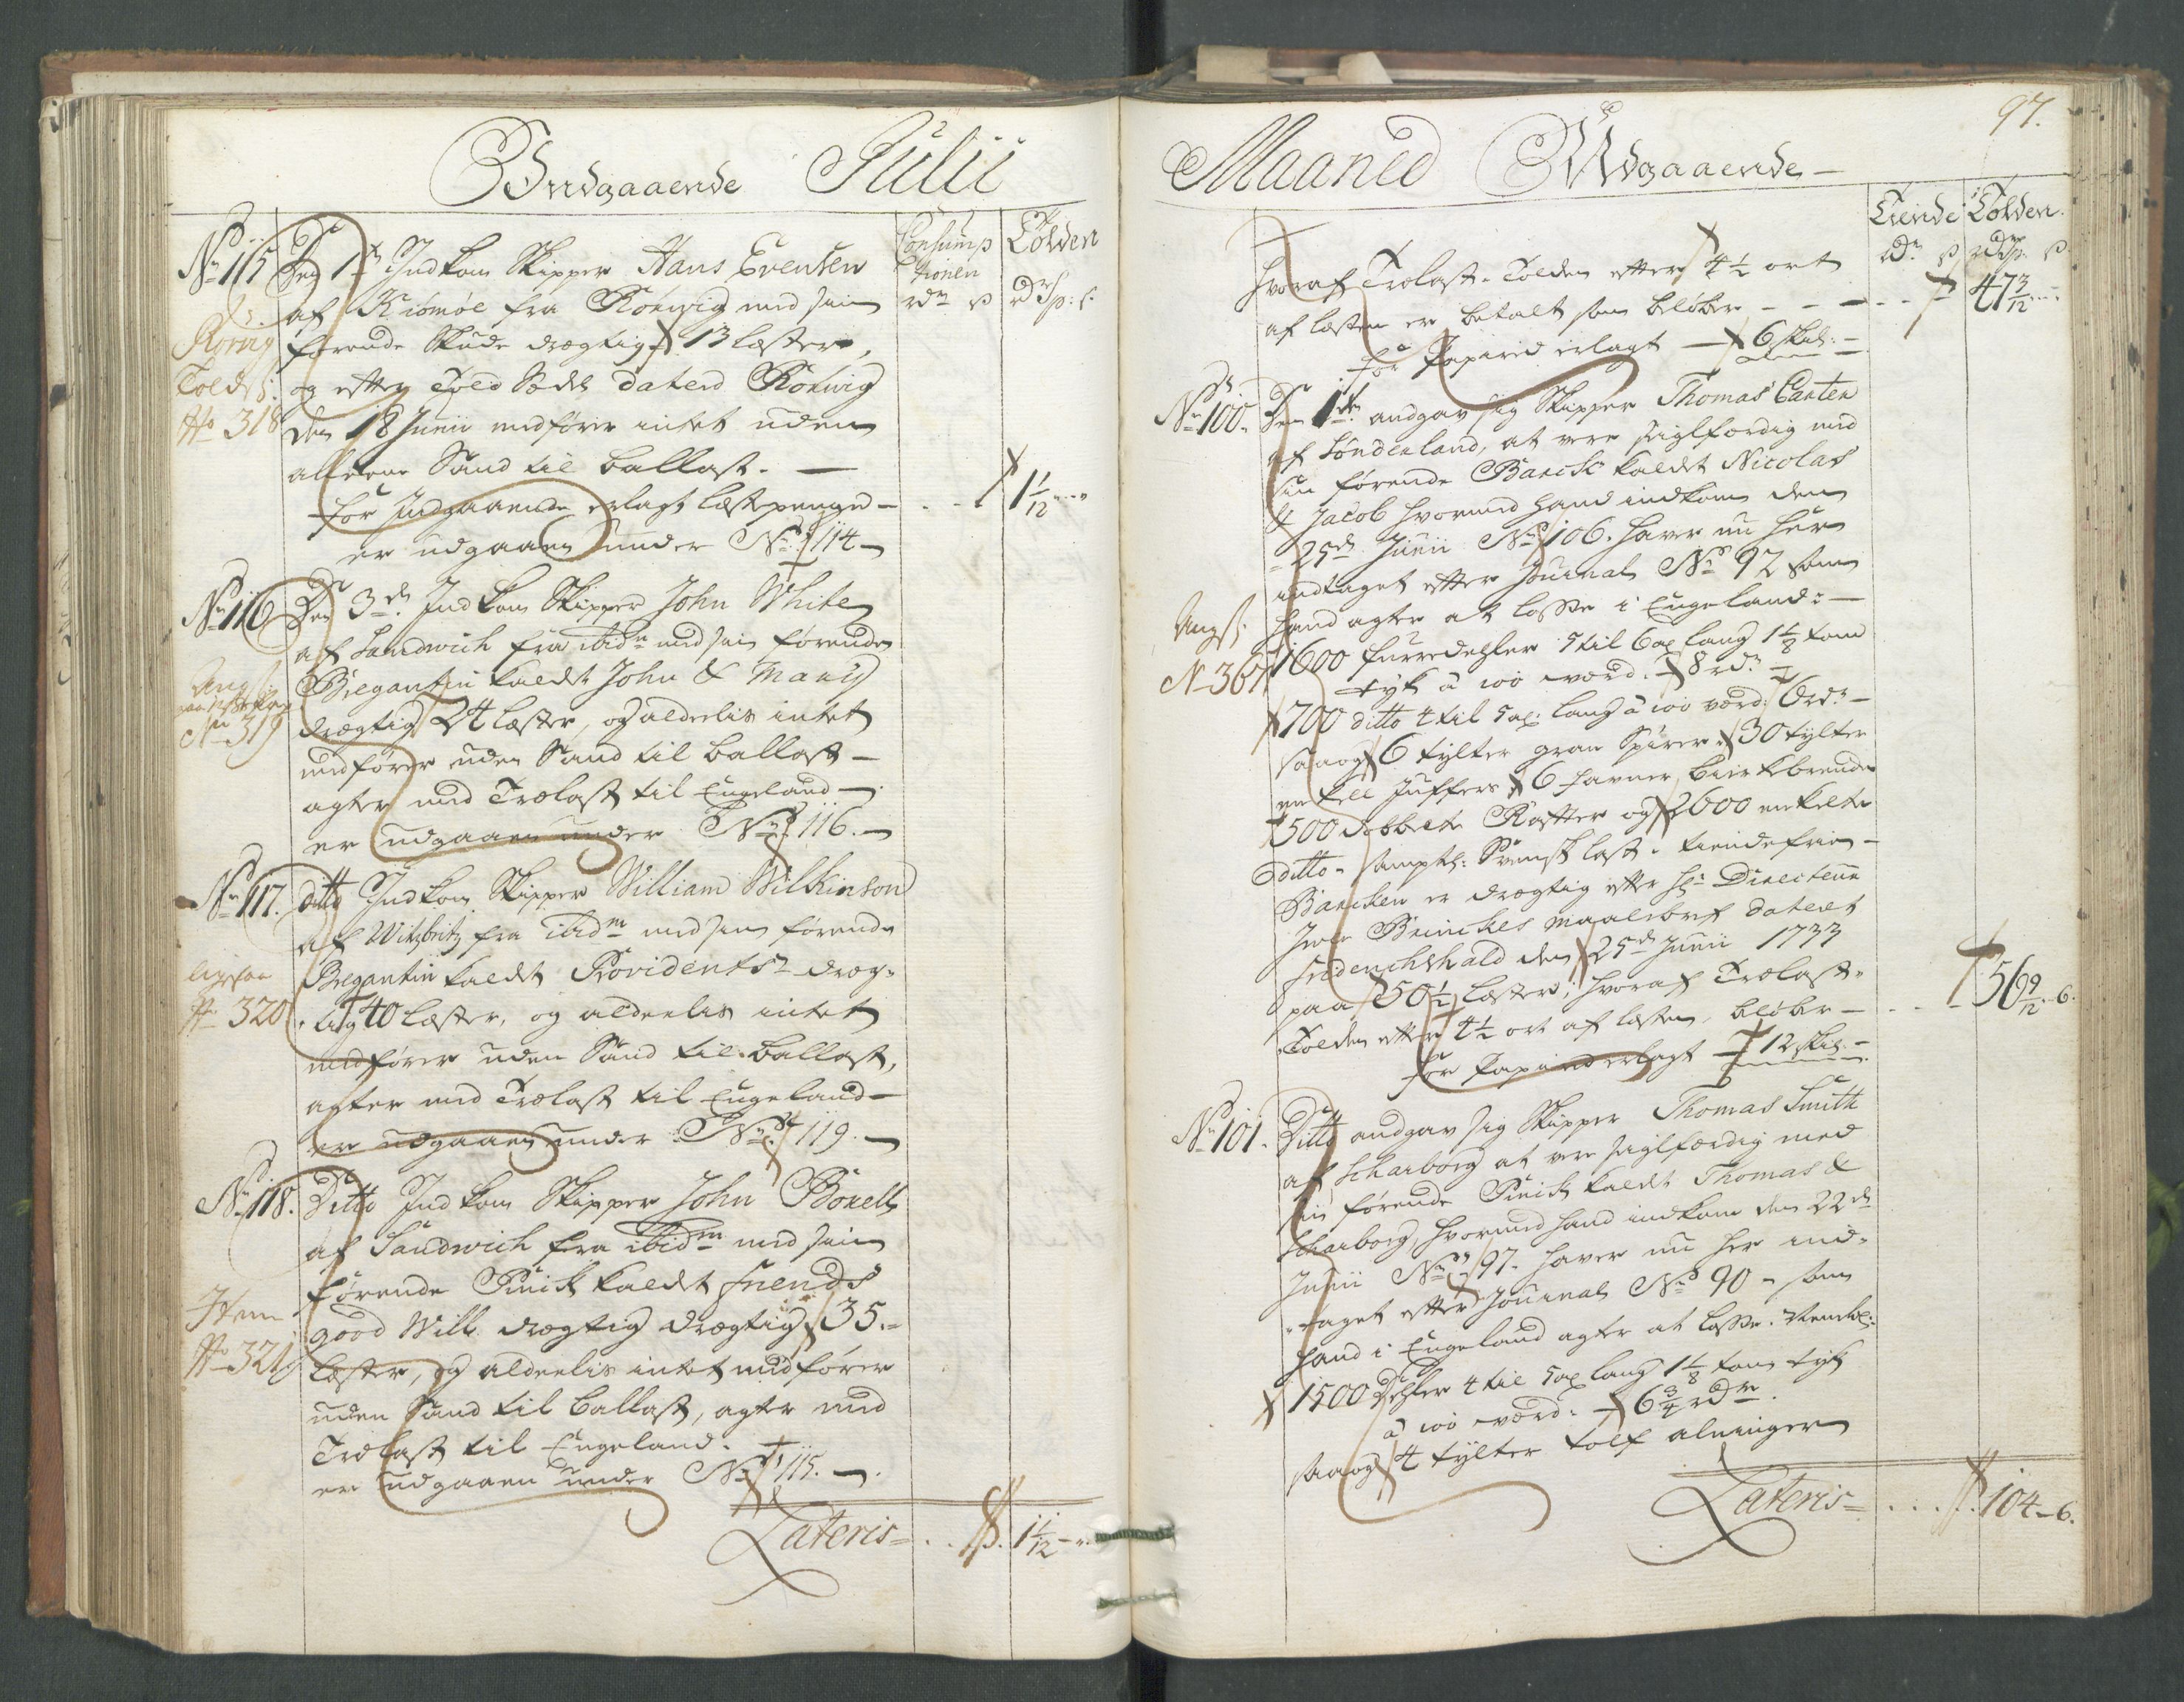 Indgaaende Julii
Consump
tionen
rdr ß
Tolden
rdr Sp: ß
No 115 Den 1te Indkom Skipper Hans Evensen
af Kiømøe fra Rørvig med sin
førende Skude drægtig 13 læster,
og efter Told Sedel dateret Rørvig
den 18 Junii medfører intet uden
alleene Sand til ballast. —
for Indgaaende erlagt læstepenge — 1 1/12
er udgaaen under No 114 —
Rørvig
Told s:
No 318
No 116 Den 3de Indkom Skipper John White
af Sandwich fra ibidm med sin førende
Bregantin kaldet John & Mary
drægtig 24 læster, og aldeelis intet
medfører uden Sand til ballast —
agter med Trælast til Engeland —
er udgaaen under No 116. —
No 319
No 117. Ditto Indkom Skipper William Wilkinson
af Witzbritz fra ibidm med sin førende
Bregantin kaldet Providents dræg-
tig 40 læster, og aldeelis intet
medfører uden Sand til ballast,
agter med Trælast til Engeland —
er udgaaen under No 119. —
ligesaa
No 320
No 118. Ditto Indkom Skipper John Borell
af Sandwich fra ibidm med sin
førende Pinck kaldet Friends
good Will drægtig drægtig 35.
læster, og aldeelis intet medfører
uden Sand til ballast, agter med
Trælast til Engeland.
er udgaaen under No 115. —
Item
No 321
Lateris 1 1/12
97.
Maaned Udgaaende —
Tiende
rdr ß
Tolden.
rdr Sp. ß
hvoraf Trælast-Tolden efter 4 1/2 ort
af læsten er betalt som beløber — 47 3/12
for Papiret erlagt — 6 skil: —
No 100. Den 1te andgav sig Skipper Thomas Carter
af Sønderland, at vere seiglfærdig med
sin førende Barck kaldet Nicolas
& Jacob hvormed hand indkom den
25de Junii No 106. haver nu her
indtaget efter Journal No 92 som
hand agter at losse i Engeland: —
1600 furredehler 5 til 6 al lang 1 1/8 tom
tyk à 100 værd. 8 rdr —
700 ditto 4 til 5 al: lang à 100 værd 6 rdr —
saa og 6 tylter gran Spirer 30 tylter
enkelt Juffers 6 favner birkebrende
500 dobbelte Rafter og 2600 enkelte
ditto - samptl: Svensk last. tiendefrie —
Barcken er drægtig efter Hr Directeur
Iver Brinckes Maalebref dateret
Friderichshald den 25de Junii 1733
paa 50 1/2 læster, hvoraf Trælast-
Tolden efter 4 1/2 ort af læsten, beløber — 56 9/12 - 6.
for Papir erlagt — 12 skil: —
No 367
No 101. Ditto andgav sig Skipper Thomas Smith
af Scharborg at vere seiglfærdig med
sin førende Pinck kaldet Thomas &
Scharborg, hvormed hand indkom den 22de
Junii No 97. haver nu her ind-
taget efter Journal No 90 - som
hand i Engeland agter at losse. Nembl:
1500 Dehler 4 til 5 al lang 1 1/8 tom tyk
à 100 værd. 6 3/4 rdr.
saa og 4 tylter tolf alninger
Lateris 104 - 6.